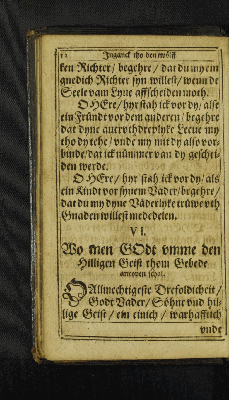 12 Inganck tho den twölff
ken Richter / begehre / dat du my ein
gnedich Richter syn willest / wenn de
Seele vam Lyve affscheiden moth.
O HEre / hyr stah ick vor dy / alse
ein Fründt vor dem anderen / begehre
dat dyne uthdrepлyke Leeve my
tho dy tehe / unde my mit dy also vor-
binde / dat ick nümmer van dy geschei-
den werde.
O HEre / hyr stah ick vor dy / als
ein Kindt vor synem Vader / begehre /
dat du my dyne Väderlyke trüwe uth
Gnaden willest mededelen.
VI.
Wo men GOdt umme den
Hilligen Geist thom Gebede
anropen schal.
O Allmechtigeste Drefoldicheit /
Godt Vader / Söhne und hil-
lige Geist / ein einich / warhafftich
unde